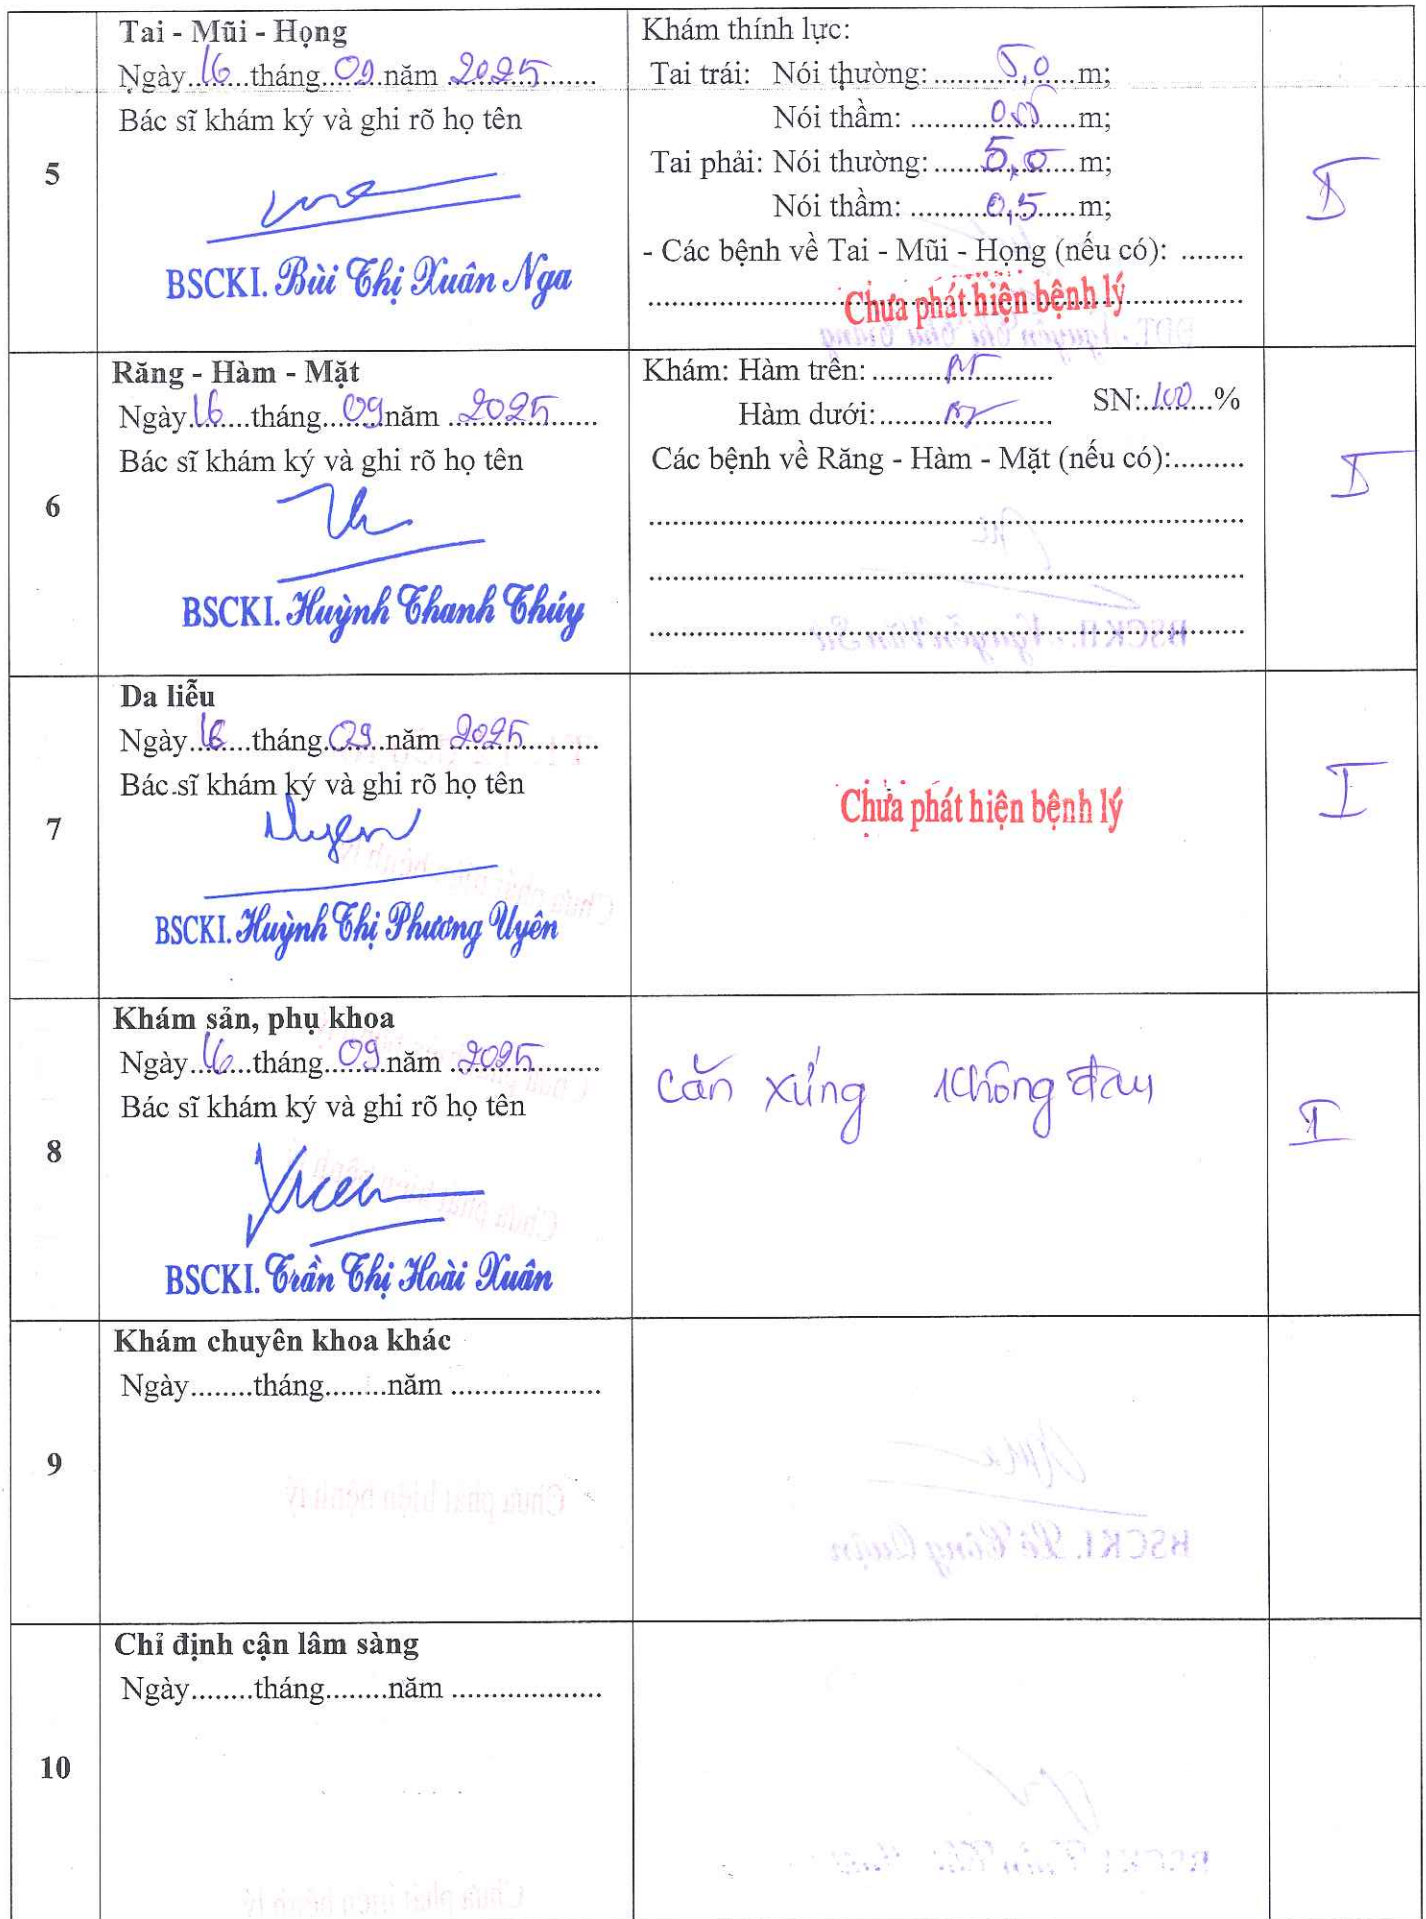 Tai - Mũi - Họng
Ngày..16...tháng..09.năm .2025.......
Bác sĩ khám ký và ghi rõ họ tên
5
BSCKI. Bùi Thị Xuân Nga
Khám thính lực:
Tai trái: Nói thường: .......5,0....m;
Nói thầm: ..........0,5......m;
Tai phải: Nói thường: ......5,0.....m;
Nói thầm: ..........0,5.....m;
- Các bệnh về Tai - Mũi - Họng (nếu có): ........
Chưa phát hiện bệnh lý
I
Răng - Hàm - Mặt
Ngày.16....tháng...09năm .2025......
Bác sĩ khám ký và ghi rõ họ tên
6
BSCKI. Huỳnh Thanh Thúy
Khám: Hàm trên: .........BT...........
Hàm dưới:.........BT..........
SN:.100...%
Các bệnh về Răng - Hàm - Mặt (nếu có):.........
I
Da liễu
Ngày..16...tháng.09..năm .2025..........
Bác sĩ khám ký và ghi rõ họ tên
7
Uyen
BSCKI. Huỳnh Thị Phương Uyên
Chưa phát hiện bệnh lý
I
Khám sản, phụ khoa
Ngày..16...tháng..09.năm .2025.........
Bác sĩ khám ký và ghi rõ họ tên
8
BSCKI. Trần Thị Hoài Xuân
không đau
I
Khám chuyên khoa khác
Ngày........tháng........năm ...................
9
Chỉ định cận lâm sàng
Ngày........tháng........năm ...................
10